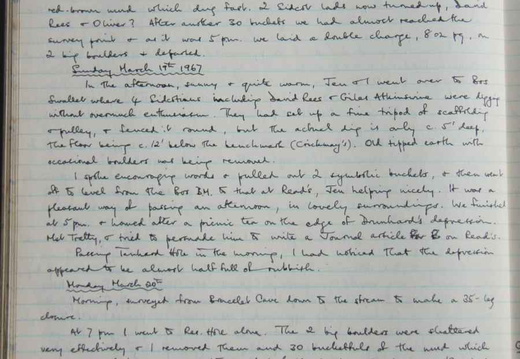 red-brown mud which dug fast. 2 Sidcot lads now turned up, David
Rees & Oliver? After another 30 buckets we had almost reached the
survey point & as it was 5 pm. we laid a double charge, 8 oz pg, on
2 big boulders & departed.
Sunday March 19th 1967
In the afternoon, sunny & quite warm, Jen & I went over to Bos
Swallet where 4 Sidcotians including David Rees & Giles Atkinson were digging
without overmuch enthusiasm. They had set up a fine tripod of scaffolding
& pulley, & fenced it round, but the actual dig is only c. 5' deep,
the floor being c. 12' below the benchmark (Crickmay's). Old tipped earth with
occasional boulders was being removed.
I spoke encouraging words & pulled out 2 symbolic buckets, & then went
off to level from the Bos B.M. to that at Read's, Jen helping nicely. It was a
pleasant way of passing an afternoon, in lovely surroundings. We finished
at 5 pm. & homed after a picnic tea on the edge of Drunkard's depression.
Met Tratty, & tried to persuade him to write a Journal article for on Read's.
Passing Tankard Hole in the morning, I had noticed that the depression
appeared to be almost half full of rubbish.
Monday March 20th
Morning, surveyed from Bracelet Cave down to the stream to make a 35-leg
closure.
At 7 pm I went to Res. Hole alone. The 2 big boulders were shattered
very effectively & I removed them and 30 bucketfuls of the mud which